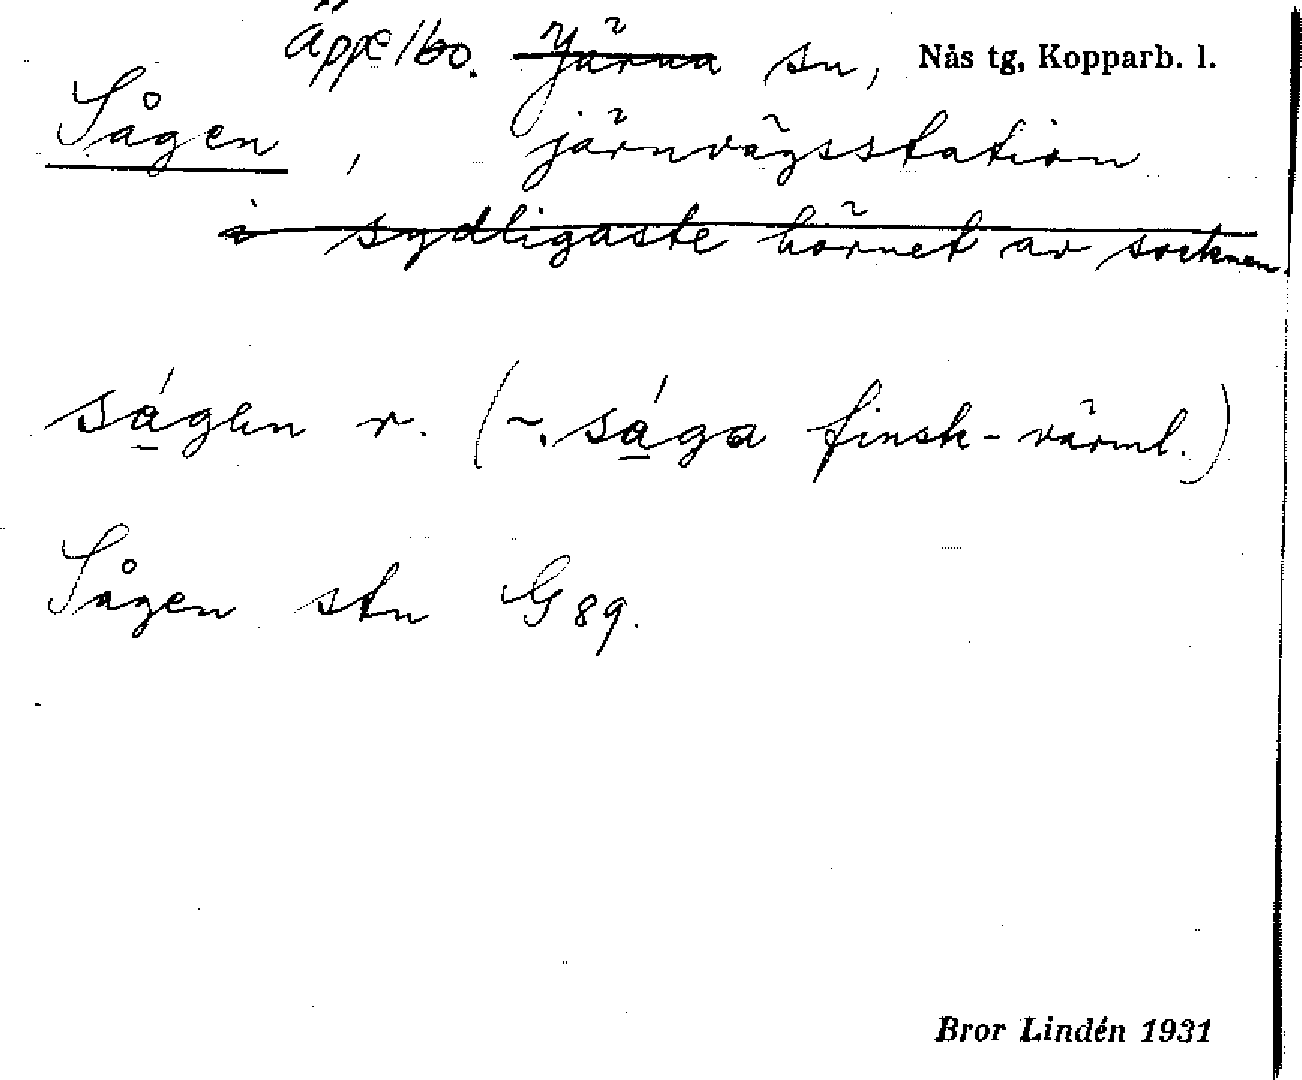 Äppelbo. Järna sn, Nås tg, Kopparb. l.
Sågen, järnvägsstation
i sydligaste hörnet av socknen.
ságen r. (~. ság̱a finsk-värml.)
Sågen stn G 89.
Bror Lindén 1931